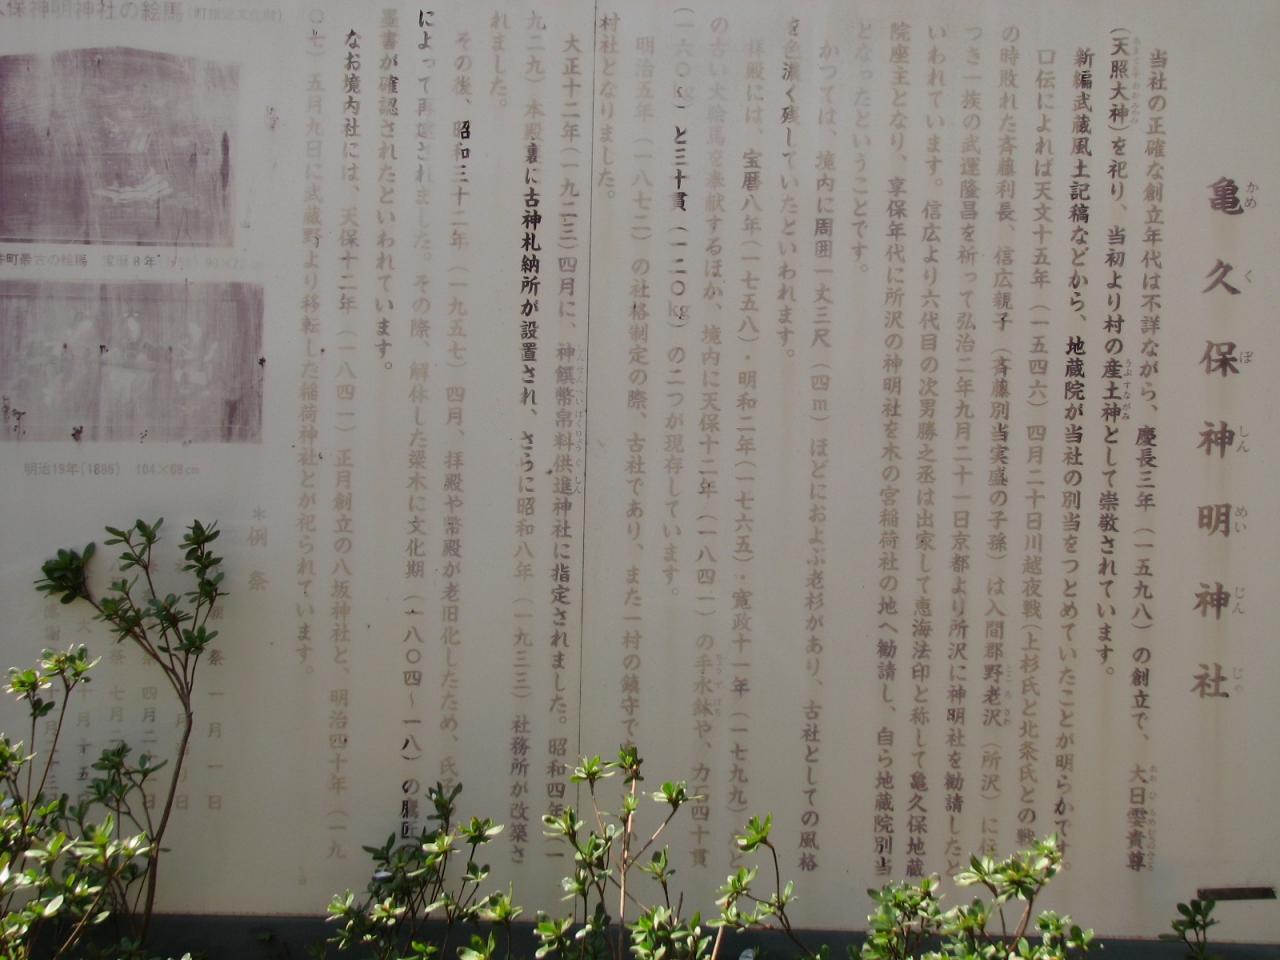 亀久保神明神社
かめくぼしんめいじんじゃ
当社の正確な創立年代は不詳ながら、慶長三年（一五九八）の創立で、大日孁貴尊
（天照大神）を祀り、当初より村の産土神として崇敬されています。
新編武蔵風土記稿などから、地蔵院が当社の別当をつとめていたことが明らかです。
口伝によれば天文十五年（一五四六）四月二十日川越夜戦（上杉氏と北条氏との戦
の時敗れた斉藤利長、信広親子（斉藤別当実盛の子孫）は入間郡野老沢（所沢）に住
つき一族の武運隆昌を祈って弘治二年九月二十一日京都より所沢に神明社を勧請したと
いわれています。信広より六代目の次男勝之丞は出家して恵海法印と称して亀久保地蔵
院座主となり、享保年代に所沢の神明社を木の宮稲荷社の地へ勧請し、自ら地蔵院別当
となったということです。
かつては、境内に周囲一丈三尺（四m）ほどにおよぶ老杉があり、古社としての風格
を色濃く残していたといわれます。
拝殿には、宝暦八年（一七五八）・明和二年（一七六五）・寛政十一年（一七九九）
の古い大絵馬を奉献するほか、境内に天保十二年（一八四一）の手水鉢や、力石四十貫
（一六〇kg）と三十貫（一二〇kg）の二つが現存しています。
明治五年（一八七二）の社格制定の際、古社であり、また一村の鎮守で
村社となりました。
大正十二年（一九二三）四月に、神饌幣帛料供進神社に指定されました。昭和四年（一
九二九）本殿裏に古神札納所が設置され、さらに昭和八年（一九三三）社務所が改築さ
れました。
その後、昭和三十二年（一九五七）四月、拝殿や幣殿が老旧化したため、氏
によって再建されました。その際、解体した梁木に文化期（一八〇四～一八）の
墨書が確認されたといわれています。
なお境内社には、天保十二年（一八四一）正月創立の八坂神社と、明治四十年（一九
〇七）五月九日に武蔵野より移転した稲荷神社とが祀られています。
＊例祭
祭 一月一日
久保神明神社の絵馬（町指定文化財）
町最古の絵馬 宝暦8年
明治19年(1886) 104×68cm